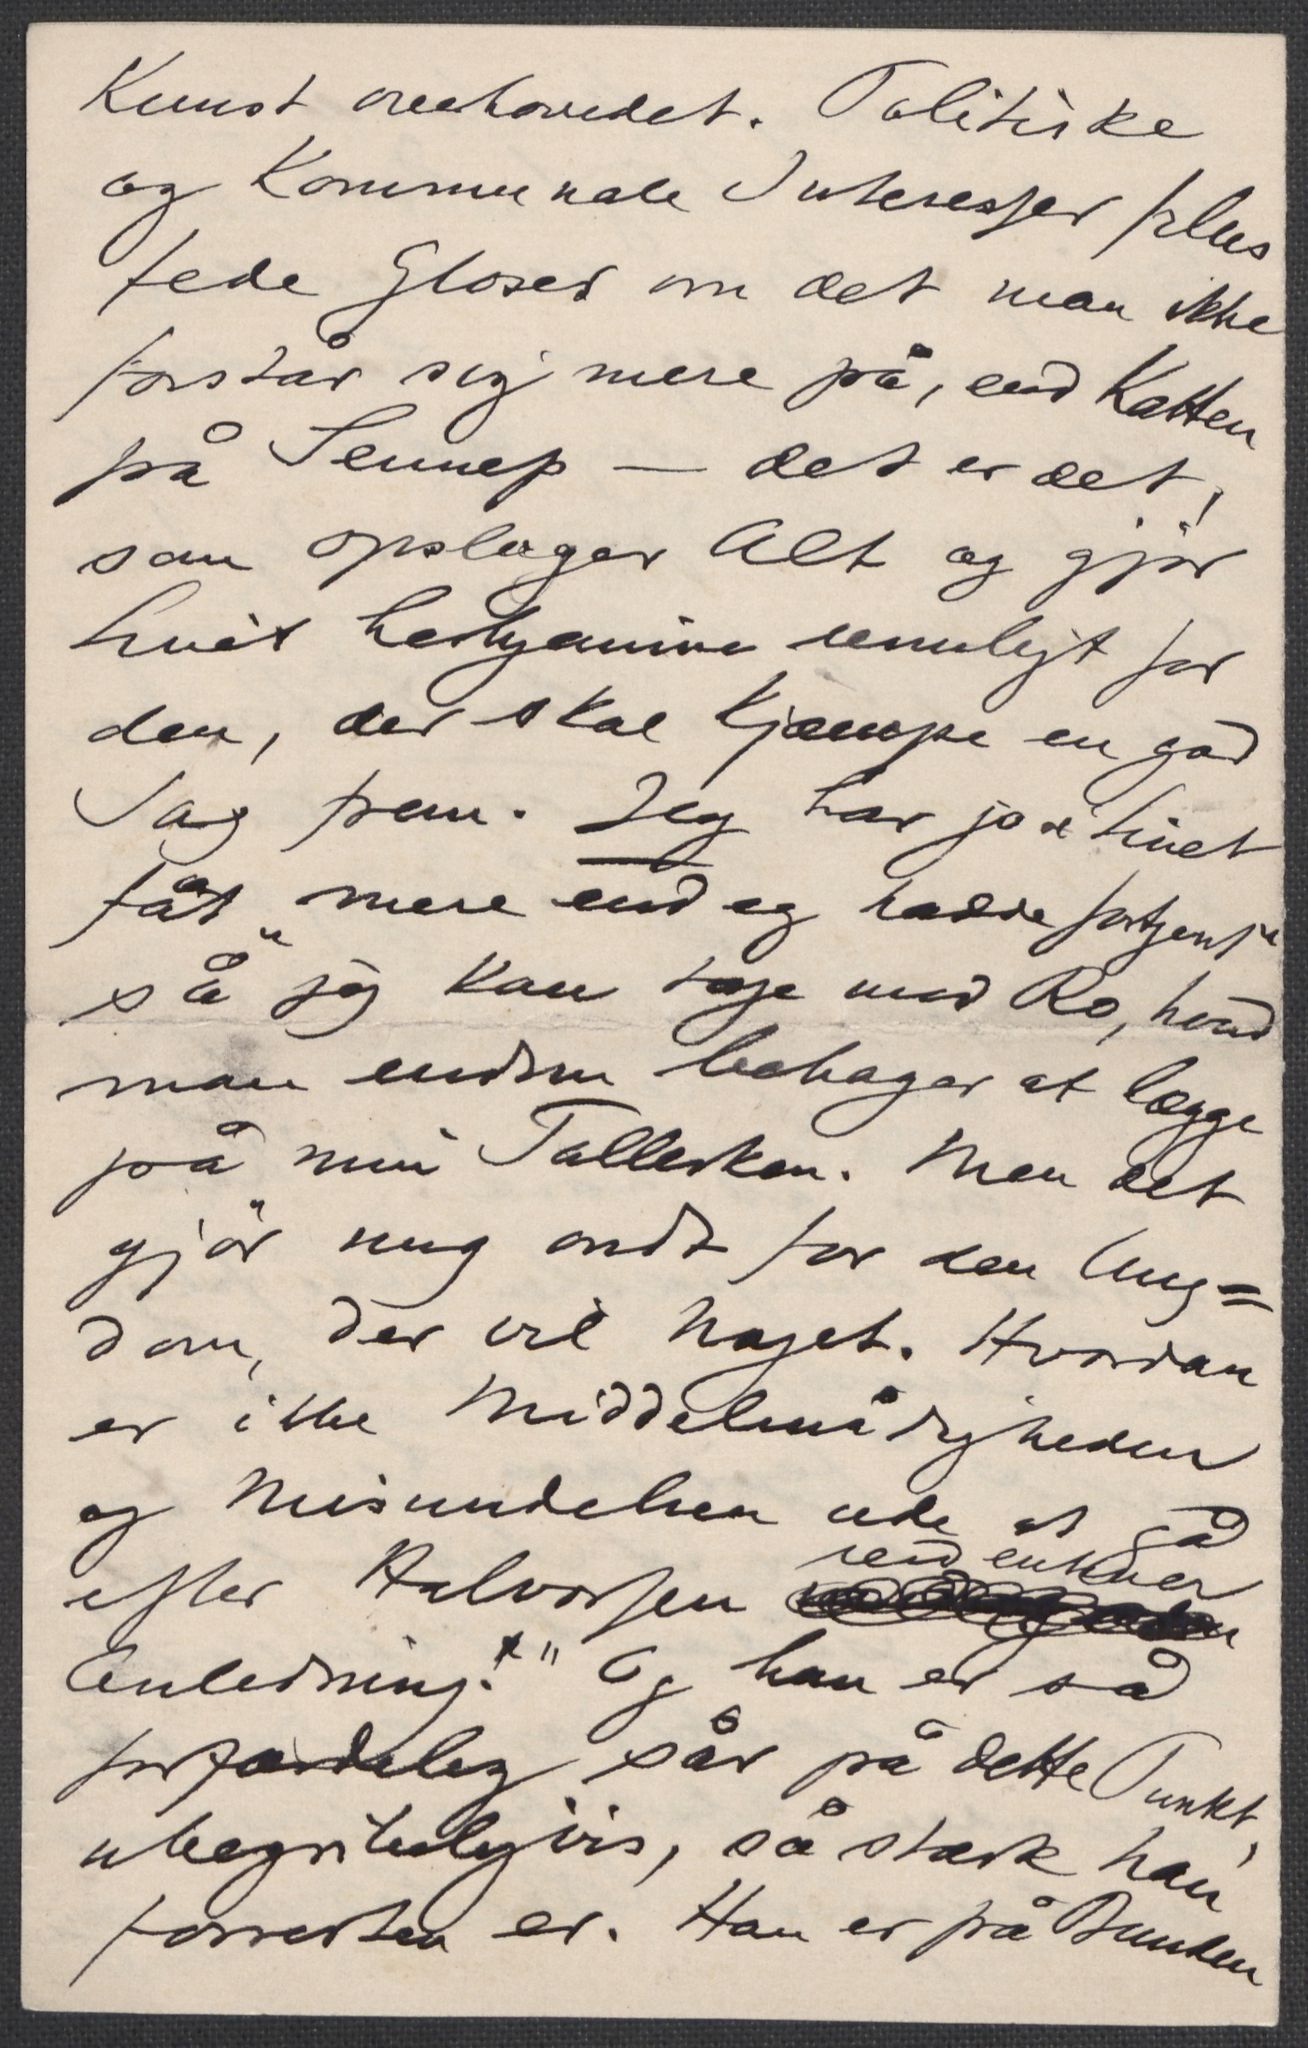 Kunst overhovedet. Politiske
og Kommunale Interesser plus
fede Gloser om det man ikke
forstår sig mere på, end Katten
på Sennep — det er det,
som opsluger Alt og gjör
livet umuligt for
den, der skal kjæmpe en god
Sag frem. Jeg har jo i livet
fåt "mere end eg hadde fortjent"
så jeg kan tage med Ro, hvad
man endnu behager at lægge
på min Tallerken. Men det
gjör mig ondt for den Ung=
dom, der vil Noget. Hvordan
er ikke Middelmådigheden
og Misundelsen ude at gå
efter Halvorsen ved enhver
Anledning! Og han er så
forfærdelig sår på dette Punkt,
ubegribeligvis, så stærk han
forresten er. Han er på Bunden